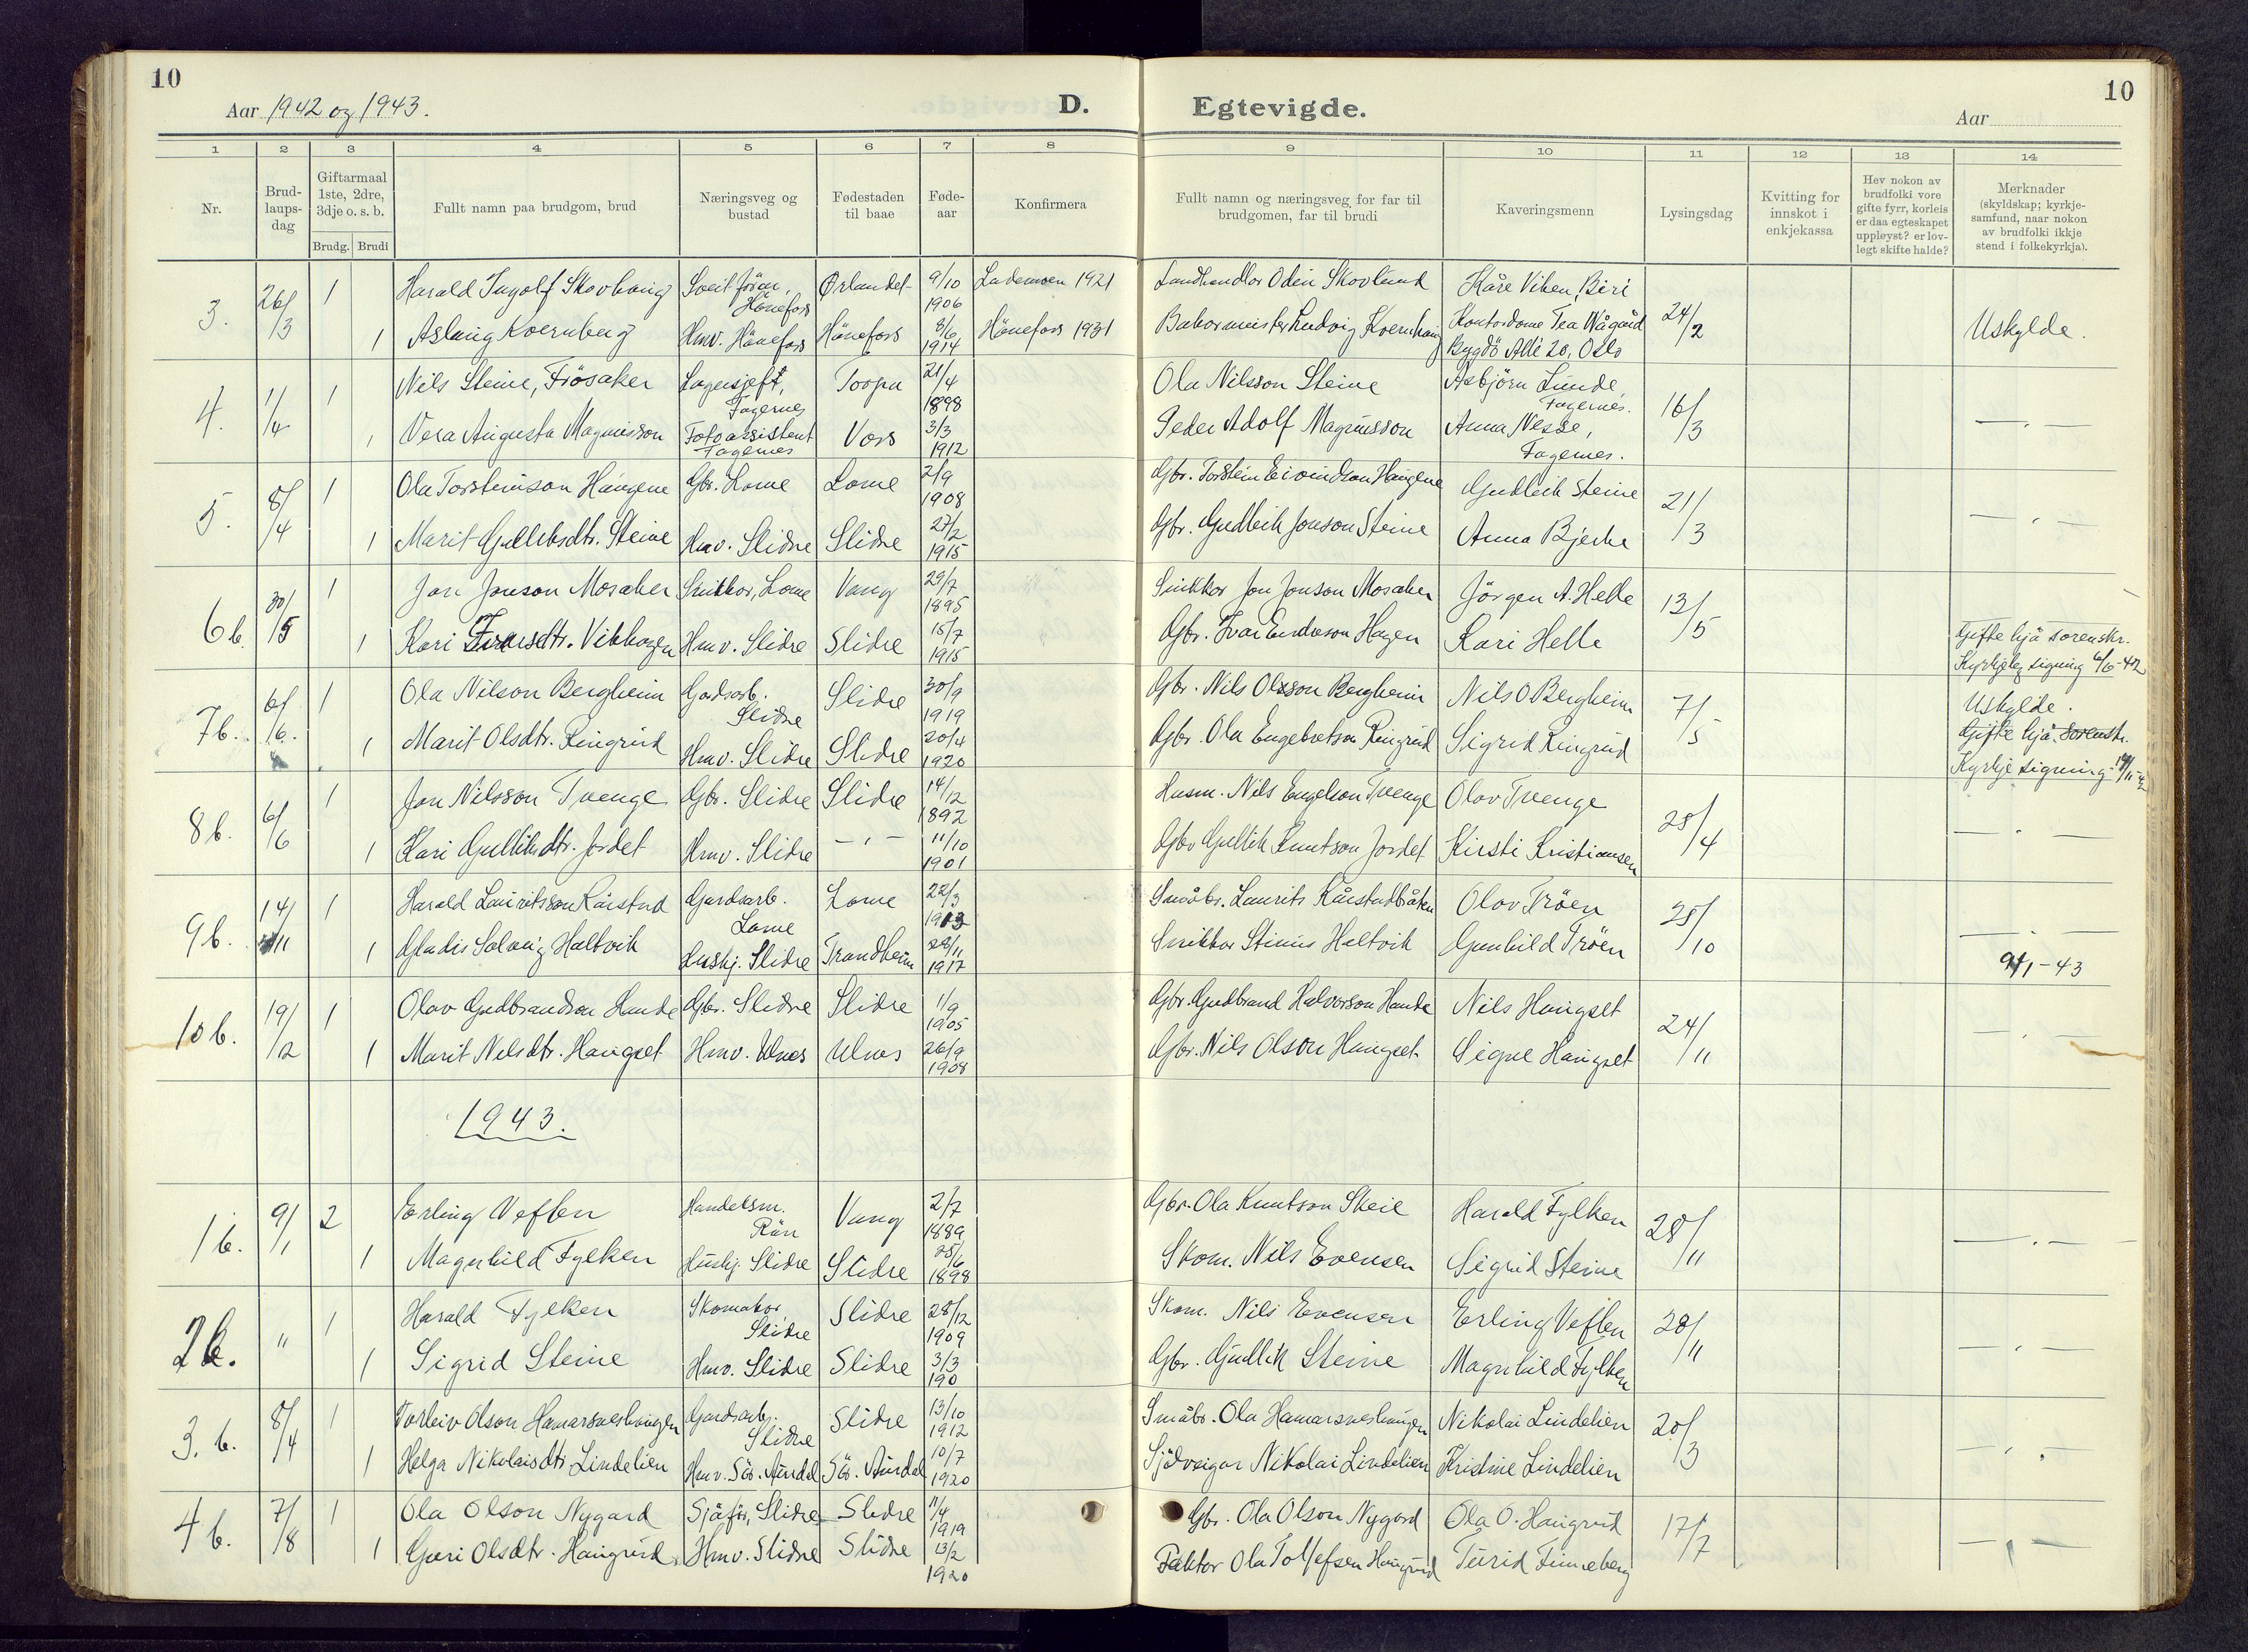 10
Aar 1942 og 1943.
D.
1 2 3 4 5 6 7 8
Nr.
Brud-
laups-
dag
Giftarmaal
1ste, 2dre,
3dje o. s. b.
Brudg. Brudi
Fullt namn paa brudgom, brud
Næringsveg og
bustad
Fødestaden
til baae
Føde-
aar
Konfirmera
3. 26/3 1 Harald Ingolf Skovhaug Ørlandet 9/10 1906 Lademoen 1921
Hönefoss
1 Aslaug Kvernberg Hmv. Hönefoss Hönefoss 8/6 1914 Hönefoss 1931
4. 1/4 1 Nils Steine, Frösaker Lagersjef, 21/4 1898
Fagernes
1 Vera Augusta Magnusson Fotoassistent Vors 3/3 1912
Fagernes
5. 8/4 1 Ola Torsteinson Haugene Gbr. Lome Lome 2/9 1908
1 Marit Gullbsdtr. Steine Hmv. Slidre Slidre 27/2 1915
6 b. 30/5 1 Jon Jonson Mosaker Snikkar, Lome Vang 29/7 1895
1 Kari Ivarsdtr. Vikhagen Hmv. Slidre Slidre 15/7 1915
7 b. 6/6. 1 Ola Nilson Bergheim Gardsarb. Slidre 30/9 1919
Slidre
1 Marit Olsdtr. Ringrud Hmv. Slidre Slidre 20/4 1920
8 b. 6/6 1 Jon Nilsson Tvenge Gbr. Slidre Slidre 14/12 1892
1 Kari Gulliksdtr. Jordet Hmv. Slidre — " — 11/10 1901
9 b. 14/11 1 Harald Lauritsson Kårstad Gardsarb. Lome 22/3 1913
Lome
1 Gladis Solveig Haltvik Huskj. Slidre Trondheim 28/11 1917
10 b. 19/12 1 Olav Gudbrandson Hande Gbr. Slidre Slidre 1/9 1905
1 Marit Nilsdtr. Haugset Hmv. Ulnes Ulnes 26/9 1908
1943.
1 b. 9/1 2 Erling Veflen Handelsm. Vang 2/7 1889
Rön
1 Magnhild Fylken Huskj. Slidre Slidre 25/6 1898
2 b. " 1 Harald Fylken Skomakar Slidre 28/12 1909
Slidre
1 Sigrid Steine Hmv. Slidre Slidre 3/3 190
3. b. 8/4 1 Torleiv Olson Hamarsneshaugen Gardsarb. Slidre 13/10 1912
Slidre
1 Helga Nikolaisdtr. Lindelien Hmv. Sör. Aurdal Sör. Aurdal 10/7 1920
4 b. 7/8 1 Ola Olson Nygard Sjåför, Slidre Slidre 11/4 1919
1 Guri Olsdtr. Haugrud Hmv. Slidre Slidre 13/2 1920
10
Egtevigde.
Aar
9 10 11 12 13 14
Fullt namn og næringsveg for far til
brudgomen, far til brudi
Kaveringsmenn
Lysingsdag
Kvitting for
innskot i
enkjekassa
Hev nokon av
brudfolki vore
gifte fyrr, korleis
er daa egteskapet
uppløyst? er lov-
legt skifte halde?
Merknader
(skyldskap; kyrkje-
samfund, naar nokon
av brudfolki ikkje
stend i folkekyrkja).
Landhandlar Odin Skovlund Kåre Viken, Biri 24/2 Uskylde.
Ludvig Kvernhaug Kontordame Tea Wågård
Bygdö Allé 20, Oslo
Ola Nilsson Steine Asbjörn Lunde, 16/3 — " —
Fagernes.
Peder Adolf Magnusson Anna Nesse,
Fagernes.
Gbr. Torstein Eivindson Haugene Gudleik Steine 21/3 — " —
Gbr. Gudleik Jonson Steine Anna Bjerke
Snikkar Jon Jonson Mosaker Jörgen A. Helle 13/5
Gbr. Ivar Endreson Hagen Kari Helle
Gifte hjå sorenskr.
Kyrkjeleg signing 6/6-42
Gbr. Nils Olsson Bergheim Nils O Bergheim 7/5 Uskylde.
Gbr. Ola Engebretson Ringrud Sigrid Ringrud
Gifte hjå sorenskr.
Kyrkje signing
Husm. Nils Engelson Tvenge Olav Tvenge 28/4 — " —
Gbr Gullik Knutson Jordet Kirsti Kristiansen
Småbr. Laurits Kårstadbråten Olav Tröen 25/10 — " —
Snikkar Stinus Haltvik Gunhild Tröen
9/1-43
Gbr. Gudbrand Halvorson Hande Nils Haugset 24/11 — " —
Gbr. Nils Olson Haugset Signe Haugset
Gbr. Ola Knutson Skeie Harald Fylken 28/11 — " —
Skom. Nils Evensen Sigrid Steine
Skom. Nils Evensen Erling Veflen 28/11 — " —
Gbr. Gudlik Steine Magnhild Fylken
Småbr. Ola Hamarsneshaugen Nikolai Lindelien 20/3 — " —
Nikolai Lindelien Kristine Lindelien
Gbr. Ola Olson Nygard Ola O. Haugrud 17/7 — " —
Faktor Ola Tollefsen Haugrud Turid Finneberg